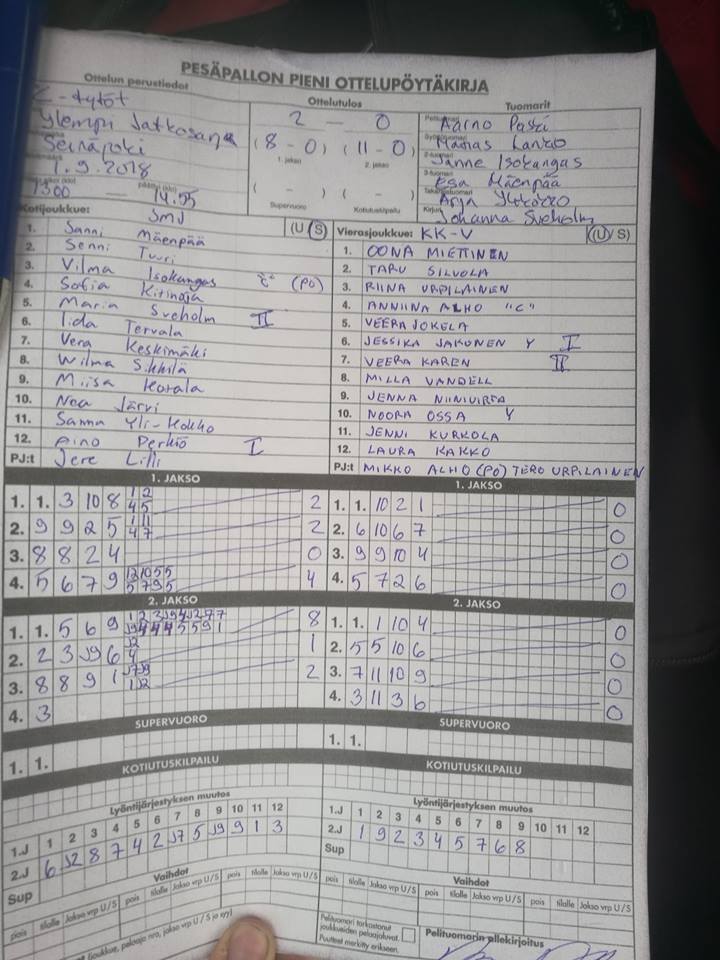 PESÄPALLON PIENI OTTELUPÖYTÄKIRJA
Ottelun perustiedot
Ottelutulos
Tuomarit
C-tytöt
Ylempi Jatkosarja
Seinäjoki
1.9.2018
1300 — 14.55
2 — 0
(8 - 0) (11 - 0)
1. jakso 2. jakso
( - ) ( - )
Supervuoro Kotiutuskilpailu
Aarno Paski
Janne Isokangas
Esa Mäenpää
Johanna Sveholm
Kotijoukkue: SMJ (U/S)
1. Sanni Mäenpää
2. Senni Tuuri
3. Vilma Isokangas "C" (PO)
4. Sofia Kitinoja
5. Maria Sveholm II
6. Iida Tervala
7. Vera Keskimäki
8. Wilma Sikkilä
9. Miisa Korala
10. Noa Järvi
11. Sanna Yli-Hokko
12. Aino Perkiö I
PJ:t Jere Lilli
Vierasjoukkue: KK-V (U/S)
1. OONA MIETTINEN
2. TARU SILVOLA
3. RIINA URPILAINEN
4. ANNIINA ALHO "C"
5. VEERA JOKELA
6. JESSIKA JAKONEN Y I
7. VEERA KAREN II
8. MILLA VANDELL
9. JENNA NIINIVIRTA
10. NOORA OSSA Y
11. JENNI KURKOLA
12. LAURA KAKKO
PJ:t MIKKO ALHO (PO) TERO URPILAINEN
1. JAKSO
1. 1. 3 10 8 1 2 4 5 2
2. 9 9 2 5 1 11 4 7 2
3. 8 8 2 4 0
4. 5 6 7 9 12 10 5 5 5 7 9 5 4
1. JAKSO
1. 1. 10 2 1 0
2. 6 10 6 7 0
3. 9 9 10 4 0
4. 5 7 2 6 0
2. JAKSO
1. 1. 5 6 9 8
2. 2 3 J9 6 1
3. 8 8 9 1 2
4. 3
2. JAKSO
1. 1. 1 10 4 0
2. 5 5 10 6 0
3. 7 11 10 9 0
4. 3 11 3 6 0
SUPERVUORO
1. 1.
SUPERVUORO
1. 1.
KOTIUTUSKILPAILU
KOTIUTUSKILPAILU
Lyöntijärjestyksen muutos
1 2 3 4 5 6 7 8 9 10 11 12
1.J
2.J 6 J2 8 7 4 2 J7 5 J9 9 1 3
Sup
Lyöntijärjestyksen muutos
1 2 3 4 5 6 7 8 9 10 11 12
1.J
2.J 1 9 2 3 4 5 7 6 8
Sup
Vaihdot
pois tilalle Jakso vrp U/S pois tilalle Jakso vrp U/S pois tilalle Jakso vrp U/S
Vaihdot
pois tilalle Jakso vrp U/S pois tilalle Jakso vrp U/S pois tilalle Jakso vrp U/S
(joukkue, pelaaja nro, jakso vrp U/S ja syy)
Pelituomari tarkastanut
joukkueiden pelaajaluvat.
Puutteet merkitty erikseen.
Pelituomarin allekirjoitus